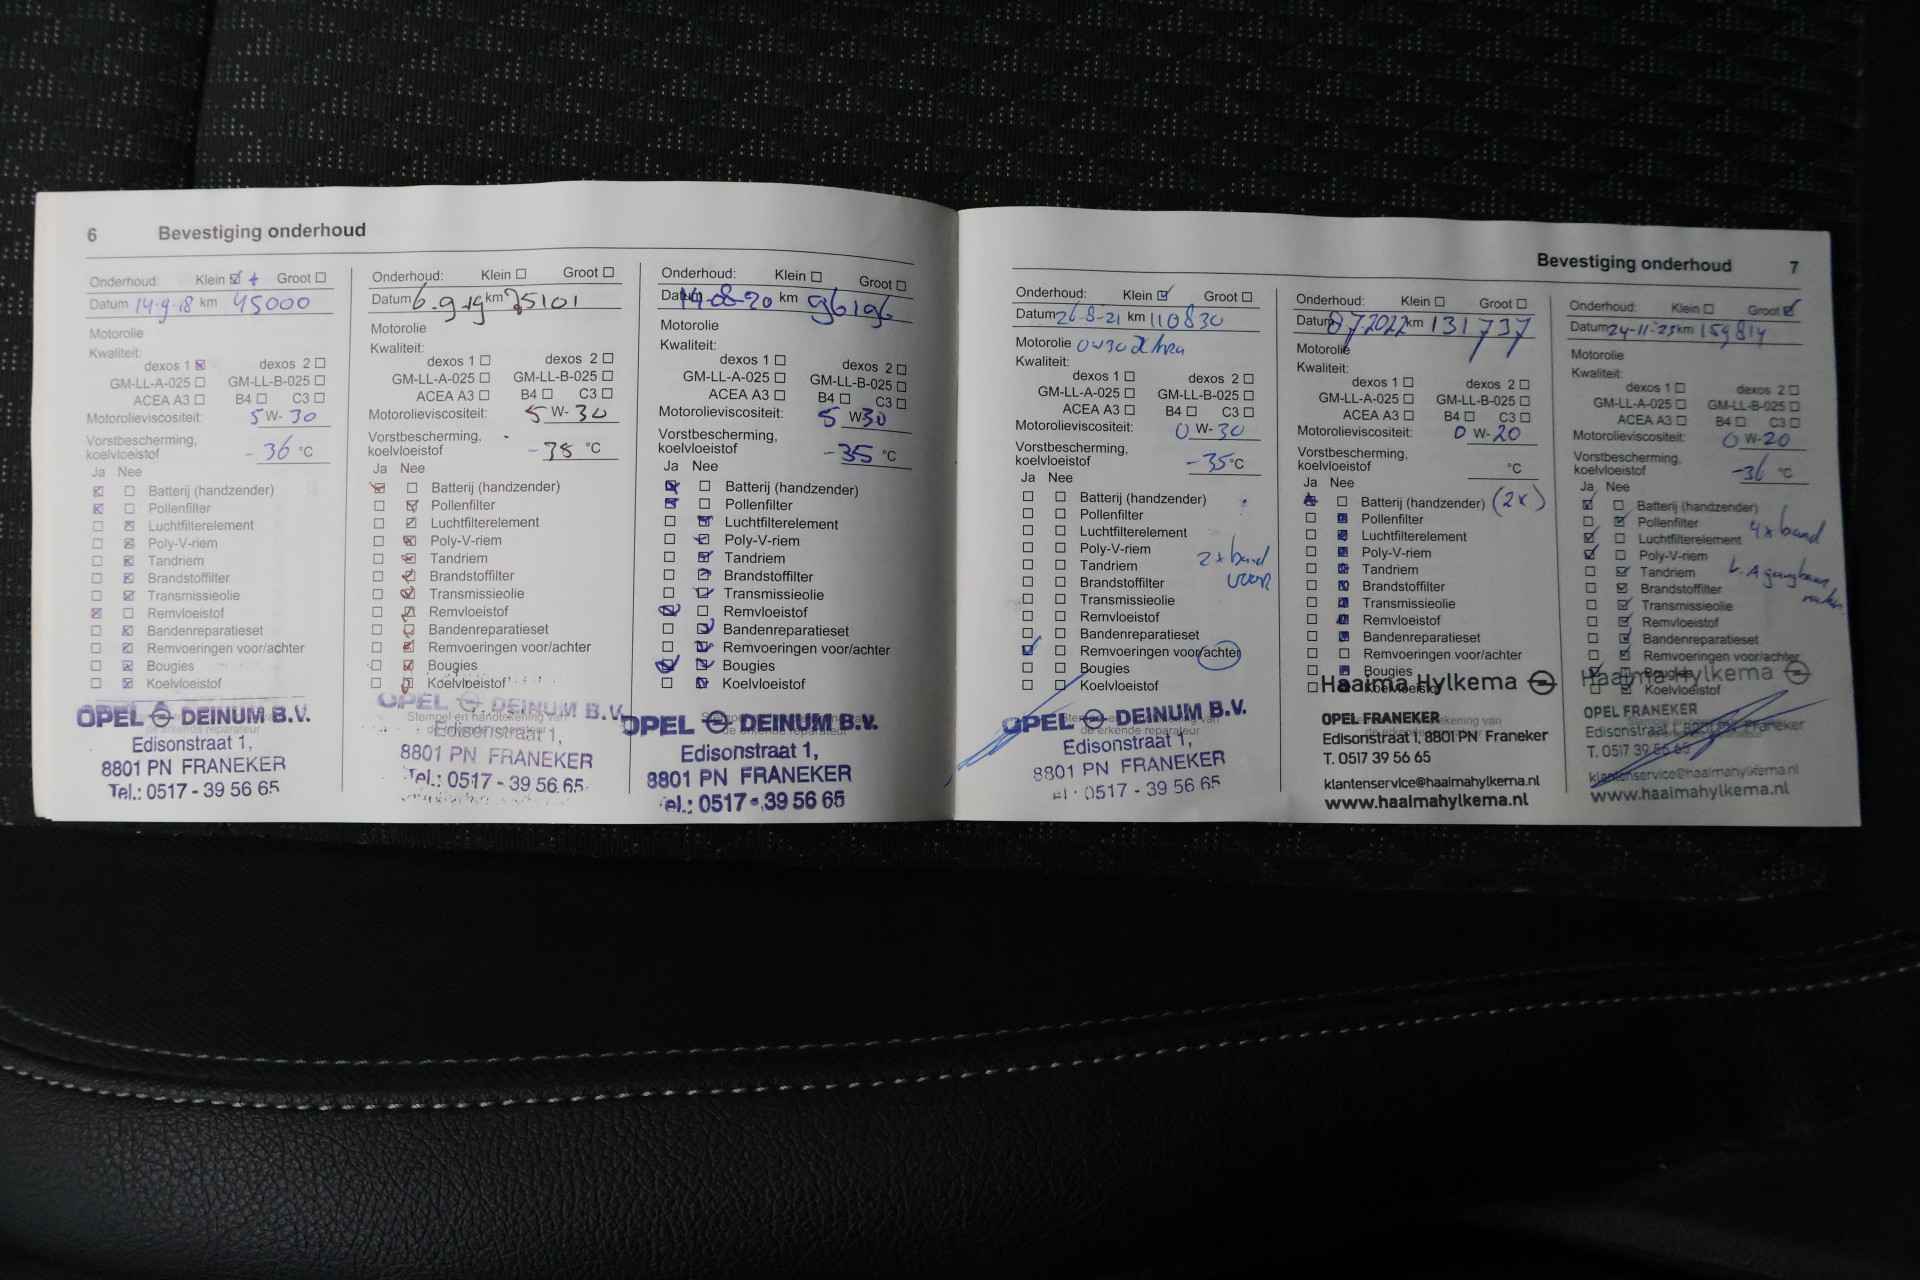 6 Bevestiging onderhoud
Onderhoud: Klein Groot
Datum 14-9-18 km 45000
Motorolie
Kwaliteit:
dexos 1 dexos 2
GM-LL-A-025 GM-LL-B-025
ACEA A3 B4 C3
Motorolieviscositeit: 5 W- 30
Vorstbescherming,
koelvloeistof - 36 °C
Ja Nee
Batterij (handzender)
Pollenfilter
Luchtfilterelement
Poly-V-riem
Tandriem
Brandstoffilter
Transmissieolie
Remvloeistof
Bandenreparatieset
Remvoeringen voor/achter
Bougies
Koelvloeistof
OPEL DEINUM B.V.
de erkende reparateur
Edisonstraat 1,
8801 PN FRANEKER
Tel.: 0517 - 39 56 65
Onderhoud: Klein Groot
Datum 6-9-19 km 75101
Motorolie
Kwaliteit:
dexos 1 dexos 2
GM-LL-A-025 GM-LL-B-025
ACEA A3 B4 C3
Motorolieviscositeit: 5 W- 30
Vorstbescherming,
koelvloeistof - 38 °C
Ja Nee
Batterij (handzender)
Pollenfilter
Luchtfilterelement
Poly-V-riem
Tandriem
Brandstoffilter
Transmissieolie
Remvloeistof
Bandenreparatieset
Remvoeringen voor/achter
Bougies
Koelvloeistof
OPEL DEINUM B.V.
Stempel en handtekening van
de erkende reparateur
Edisonstraat 1,
8801 PN FRANEKER
Tel.: 0517 - 39 56 65
Onderhoud: Klein Groot
Datum 14-08-20 km 96196
Motorolie
Kwaliteit:
dexos 1 dexos 2
GM-LL-A-025 GM-LL-B-025
ACEA A3 B4 C3
Motorolieviscositeit: 5 W- 30
Vorstbescherming,
koelvloeistof -35 °C
Ja Nee
Batterij (handzender)
Pollenfilter
Luchtfilterelement
Poly-V-riem
Tandriem
Brandstoffilter
Transmissieolie
Remvloeistof
Bandenreparatieset
Remvoeringen voor/achter
Bougies
Koelvloeistof
OPEL DEINUM B.V.
de erkende reparateur
Edisonstraat 1,
8801 PN FRANEKER
Tel.: 0517 - 39 56 65
Bevestiging onderhoud 7
Onderhoud: Klein Groot
Datum 26-8-21 km 110830
Motorolie 0W30
Kwaliteit:
dexos 1 dexos 2
GM-LL-A-025 GM-LL-B-025
ACEA A3 B4 C3
Motorolieviscositeit: 0 W- 30
Vorstbescherming,
koelvloeistof -35 °C
Ja Nee
Batterij (handzender)
Pollenfilter
Luchtfilterelement
Poly-V-riem
Tandriem 2x band
Brandstoffilter voor
Transmissieolie
Remvloeistof
Bandenreparatieset
Remvoeringen voor/achter
Bougies
Koelvloeistof
OPEL DEINUM B.V.
Stempel en handtekening van
de erkende reparateur
Edisonstraat 1,
8801 PN FRANEKER
0517 - 39 56 65
Onderhoud: Klein Groot
Datum 7-2022 km 131737
Motorolie
Kwaliteit:
dexos 1 dexos 2
GM-LL-A-025 GM-LL-B-025
ACEA A3 B4 C3
Motorolieviscositeit: 0 W- 20
Vorstbescherming,
koelvloeistof °C
Ja Nee
Batterij (handzender) (2x)
Pollenfilter
Luchtfilterelement
Poly-V-riem
Tandriem
Brandstoffilter
Transmissieolie
Remvloeistof
Bandenreparatieset
Remvoeringen voor/achter
Bougies
Haaima Hylkema
Koelvloeistof
OPEL FRANEKER
Edisonstraat 1, 8801 PN Franeker
T. 0517 39 56 65
klantenservice@haaimahylkema.nl
www.haaimahylkema.nl
Onderhoud: Klein Groot
Datum 24-11-23 km 159814
Motorolie
Kwaliteit:
dexos 1 dexos 2
GM-LL-A-025 GM-LL-B-025
ACEA A3 B4 C3
Motorolieviscositeit: 0 W-20
Vorstbescherming,
koelvloeistof -36 °C
Ja Nee
Batterij (handzender)
Pollenfilter 4x band
Luchtfilterelement
Poly-V-riem
Tandriem
Brandstoffilter
Transmissieolie
Remvloeistof
Bandenreparatieset
Remvoeringen voor/achter
Bougies
Haaima Hylkema
Koelvloeistof
OPEL FRANEKER
Edisonstraat 1, 8801 PN Franeker
T. 0517 39 56 65
klantenservice@haaimahylkema.nl
www.haaimahylkema.nl